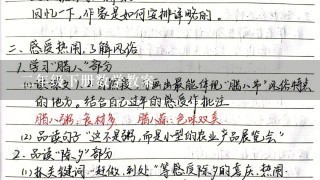 回忆一下,作家是如何安排详略的。
二、感受热闹,了解风俗
1.学习"腊八"部分
最能体现"腊八节"风俗特点
的地方。结合自己过年的感受作批注
腊八粥:食材多 腊八蒜:色味双美
(2)品读句子"这不是粥,而是小型的农业产品展览会"
2.品读"除夕"部分
(1)抓关键词,"赶做,到处"等感受除夕的喜庆、热闹